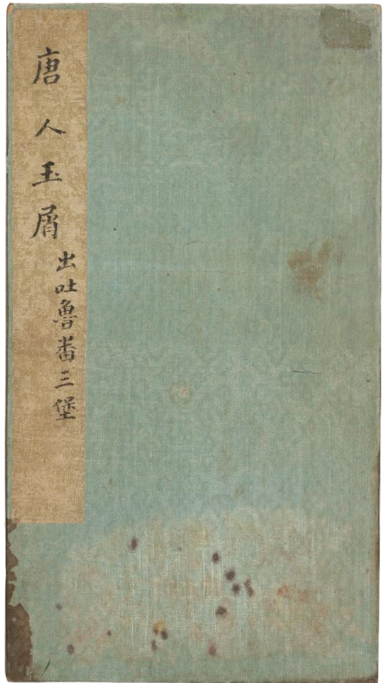 唐人玉屑
出吐魯番三堡